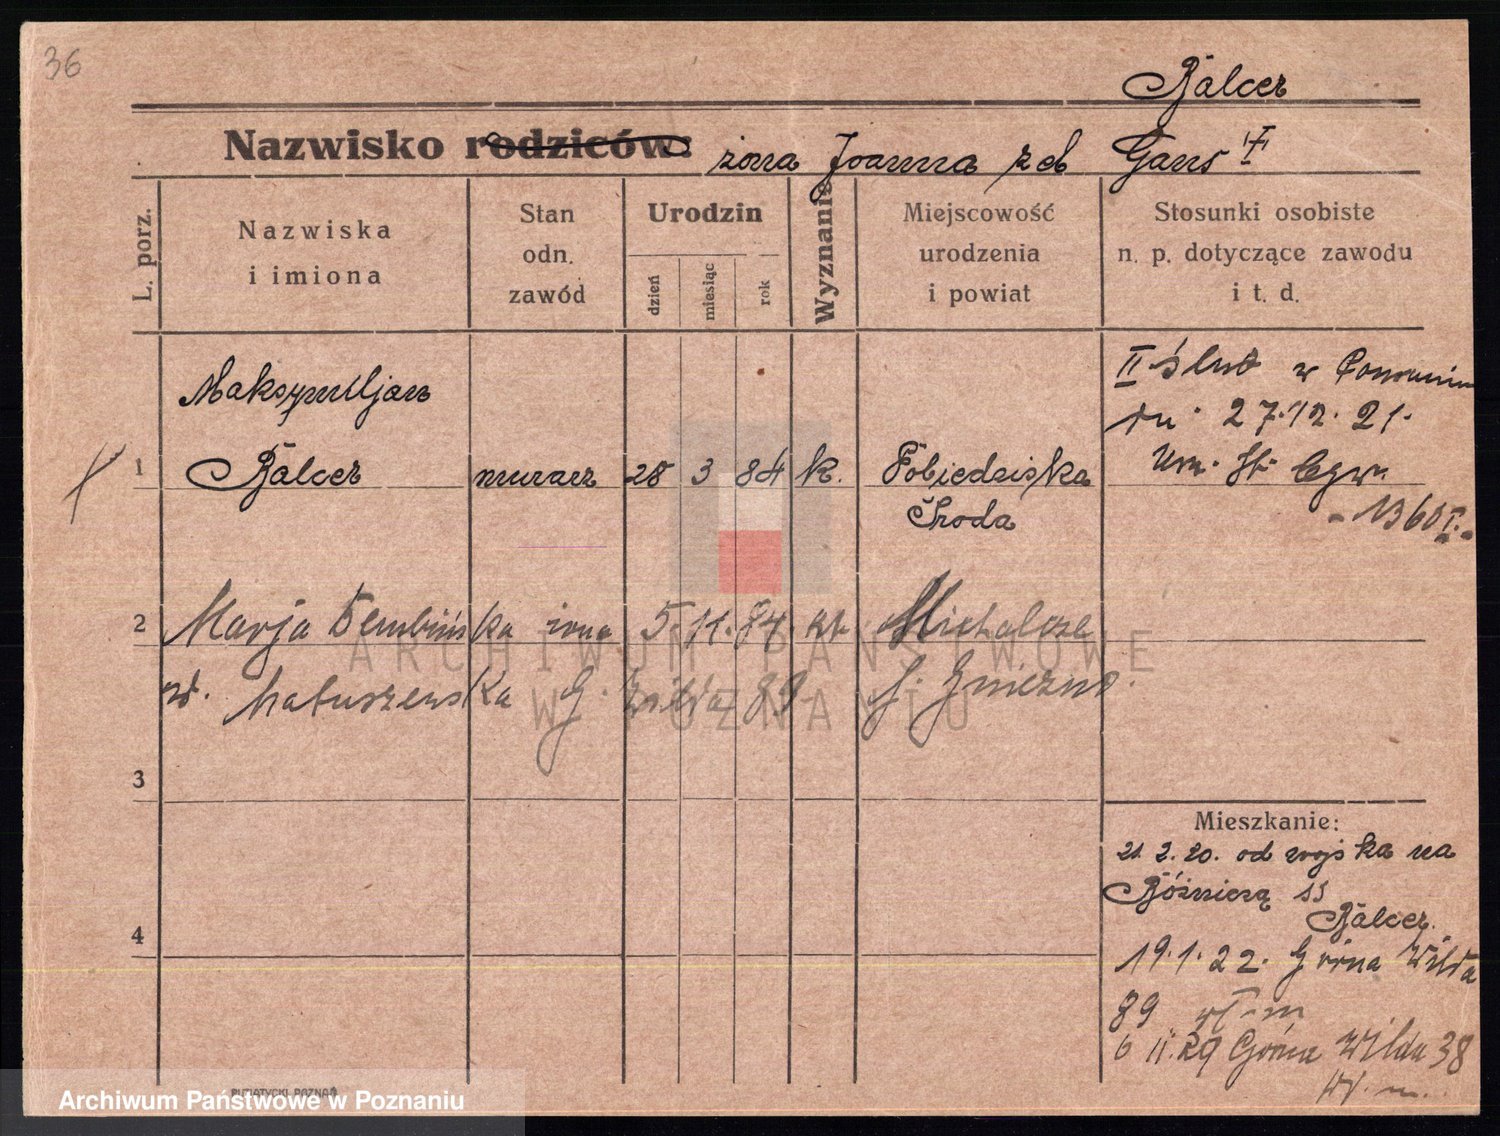 36
Balcer
Nazwisko rodziców: żona Joanna zd Gans I
L. porz.
Nazwiska
i imiona
Stan
odn.
zawód
Urodzin
dzień
miesiąc
rok
Wyznanie
Miejscowość
urodzenia
i powiat
Stosunki osobiste
n. p. dotyczące zawodu
i t. d.
Maksymiljan
1 Balcer murarz 28 3 84 k. Pobiedziska
Środa
II ślub w Poznaniu
dn. 27.12.21.
Urz. St. Cyw.
- 1360 I. -
2 Marja Dembińska żona 5. 11. 84. kt. Michalcza
zd. Matuszewska G. Wilda 89 p. Gniezno.
3
4
Mieszkanie:
21.2.20. od wojska na
Bóżniczą 11
Balcer.
19.1.22. Górna Wilda
89 wł. m
6 II.29 Górna Wilda 38
wł. m.
ARCHIWUM PAŃSTWOWE
W POZNANIU
PUZIATYCKI, POZNAŃ
Archiwum Państwowe w Poznaniu